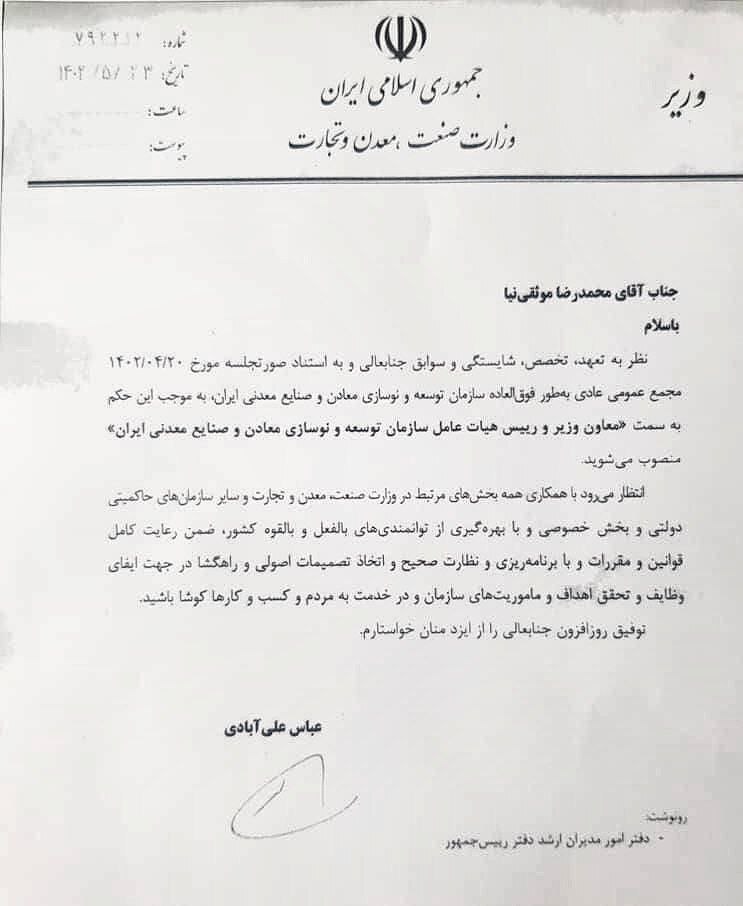 جمهوری اسلامی ایران
وزارت صنعت، معدن و تجارت
وزیر
شماره:
تاریخ: ۱۴۰۲/۵/۲۳
ساعت:
پیوست:
جناب آقای محمدرضا موثقی‌نیا
باسلام
نظر به تعهد، تخصص، شایستگی و سوابق جنابعالی و به استناد صورتجلسه مورخ ۱۴۰۲/۰۴/۲۰
مجمع عمومی عادی به‌طور فوق‌العاده سازمان توسعه و نوسازی معادن و صنایع معدنی ایران، به موجب این حکم
به سمت «معاون وزیر و رییس هیات عامل سازمان توسعه و نوسازی معادن و صنایع معدنی ایران»
منصوب می‌شوید.
انتظار می‌رود با همکاری همه بخش‌های مرتبط در وزارت صنعت، معدن و تجارت و سایر سازمان‌های حاکمیتی
دولتی و بخش خصوصی و با بهره‌گیری از توانمندی‌های بالفعل و بالقوه کشور، ضمن رعایت کامل
قوانین و مقررات و با برنامه‌ریزی و نظارت صحیح و اتخاذ تصمیمات اصولی و راهگشا در جهت ایفای
وظایف و تحقق اهداف و ماموریت‌های سازمان و در خدمت به مردم و کسب و کارها کوشا باشید.
توفیق روزافزون جنابعالی را از ایزد منان خواستارم.
عباس علی‌آبادی
رونوشت:
- دفتر امور مدیران ارشد دفتر رییس‌جمهور